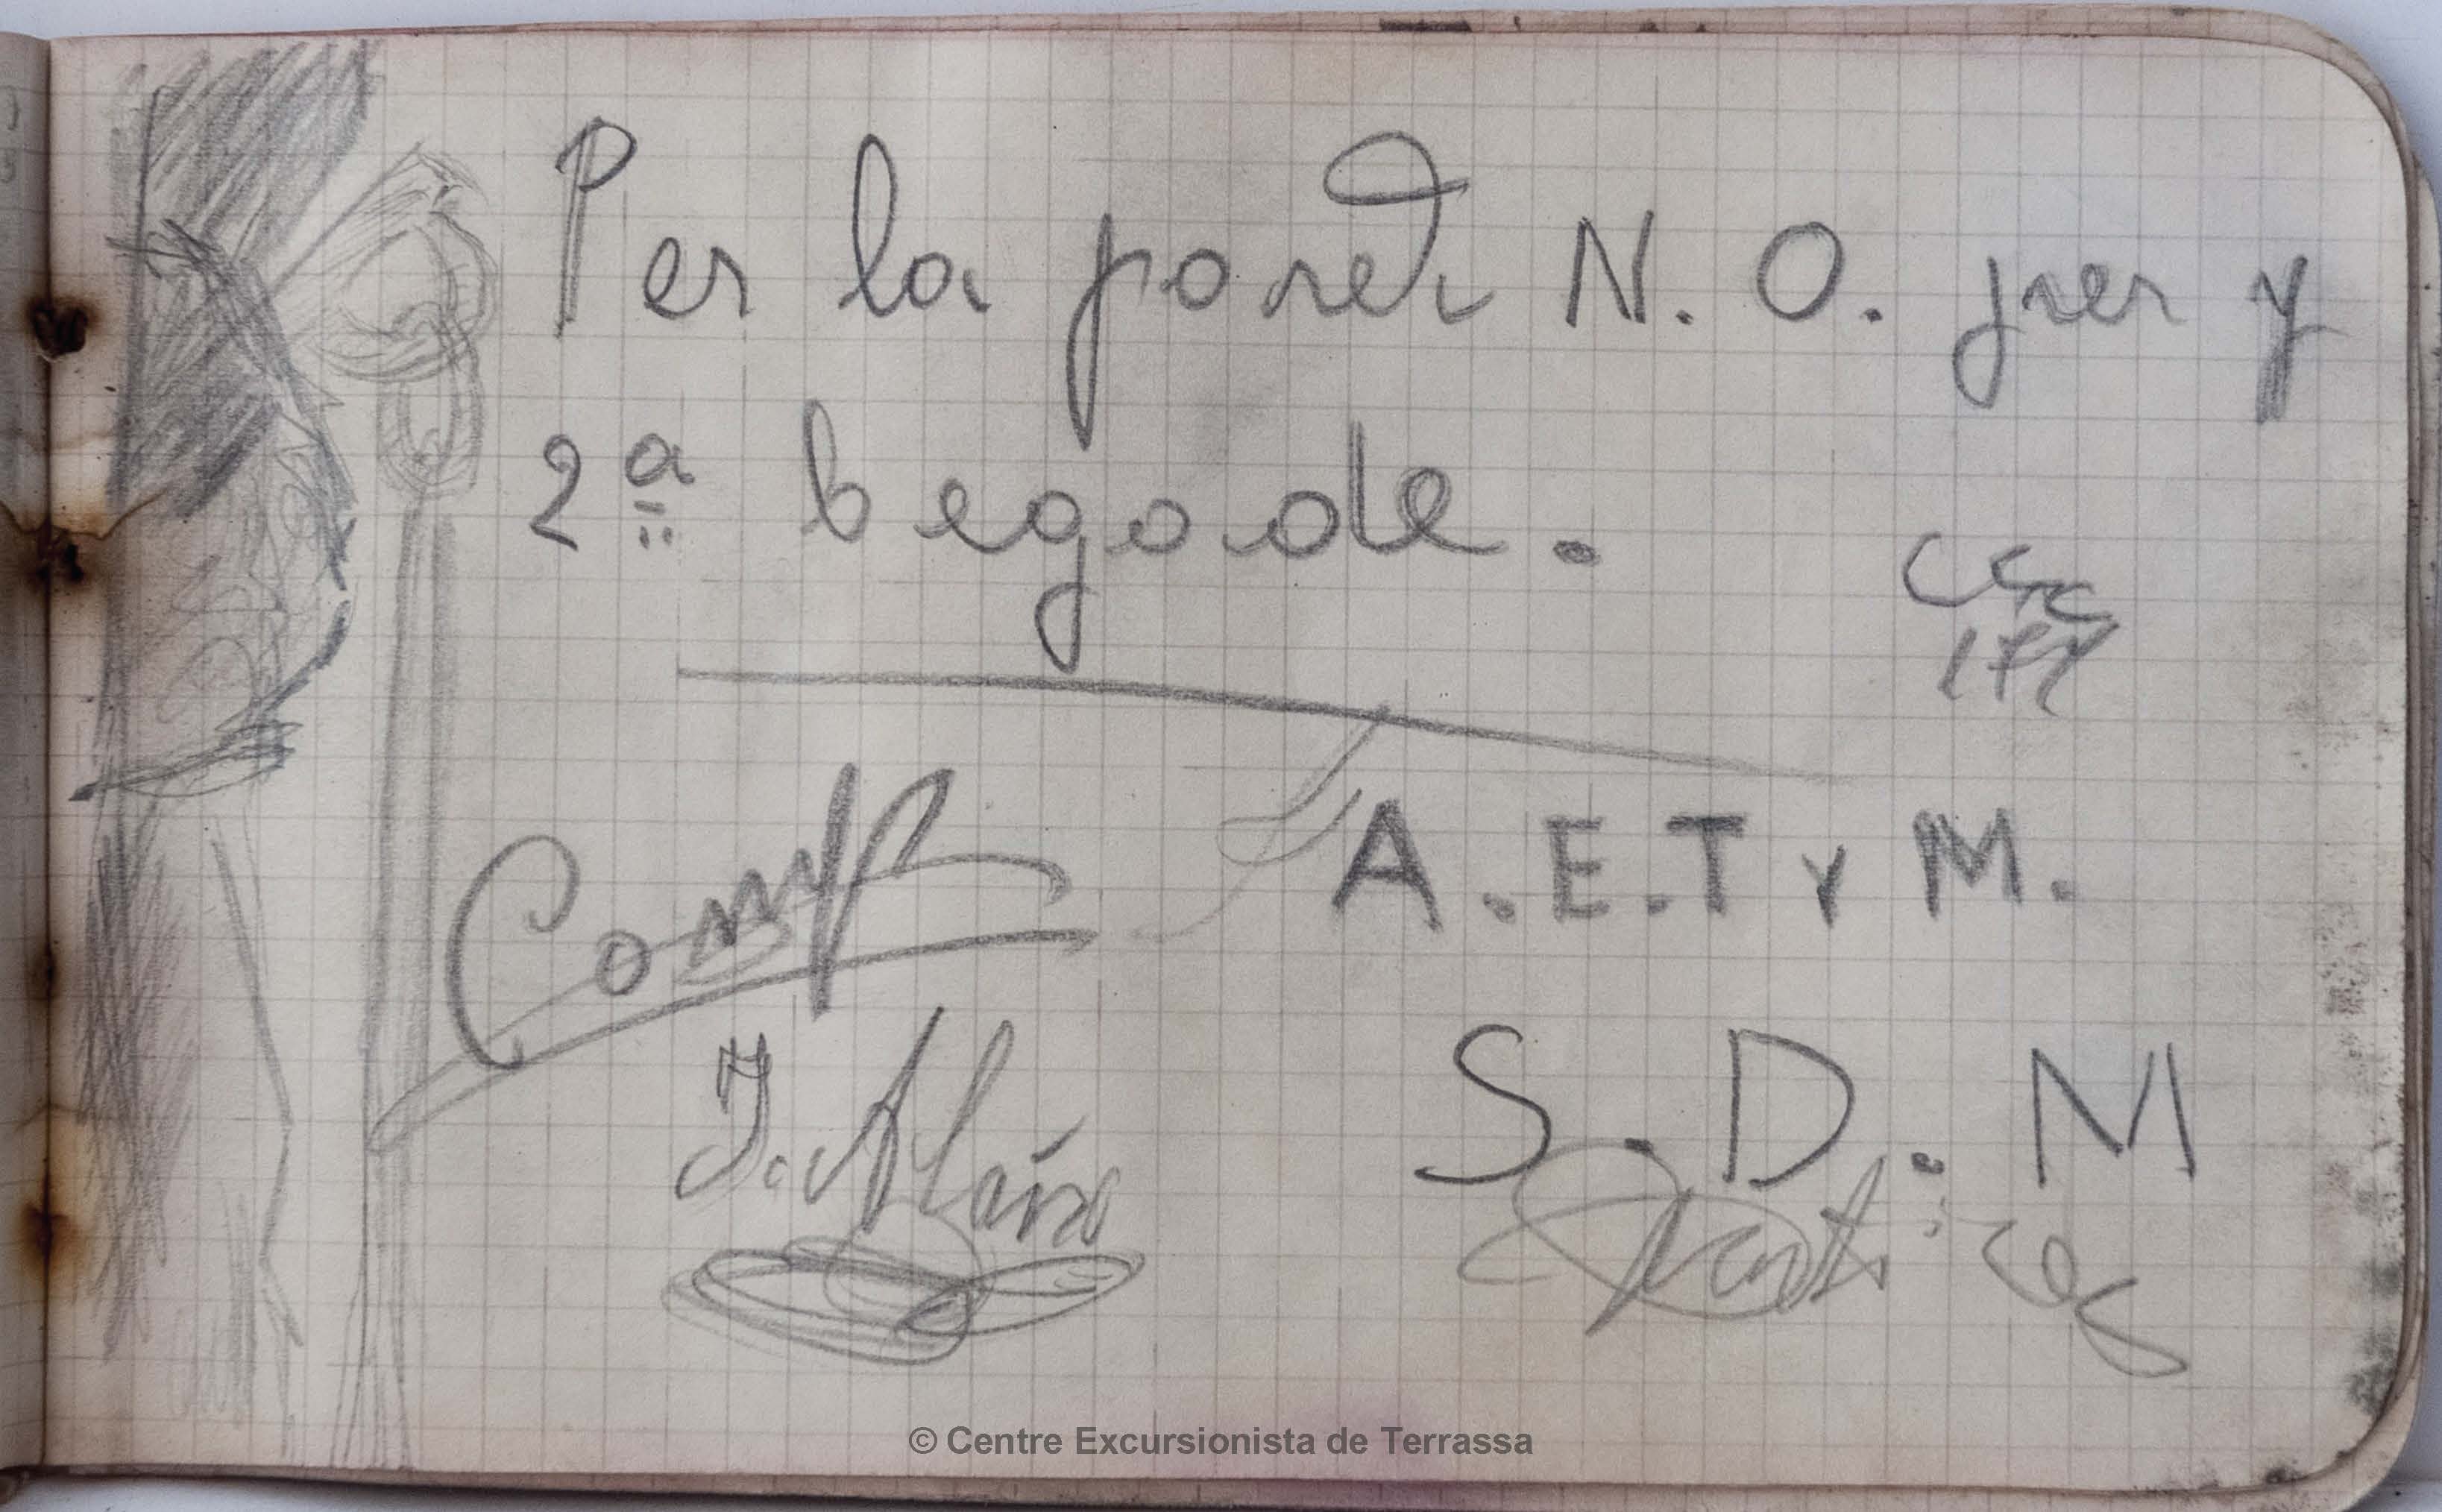 Per la paret N. O. per y
2ª begade.
A.E.T y M.
J. Alaix
S. D. M
© Centre Excursionista de Terrassa